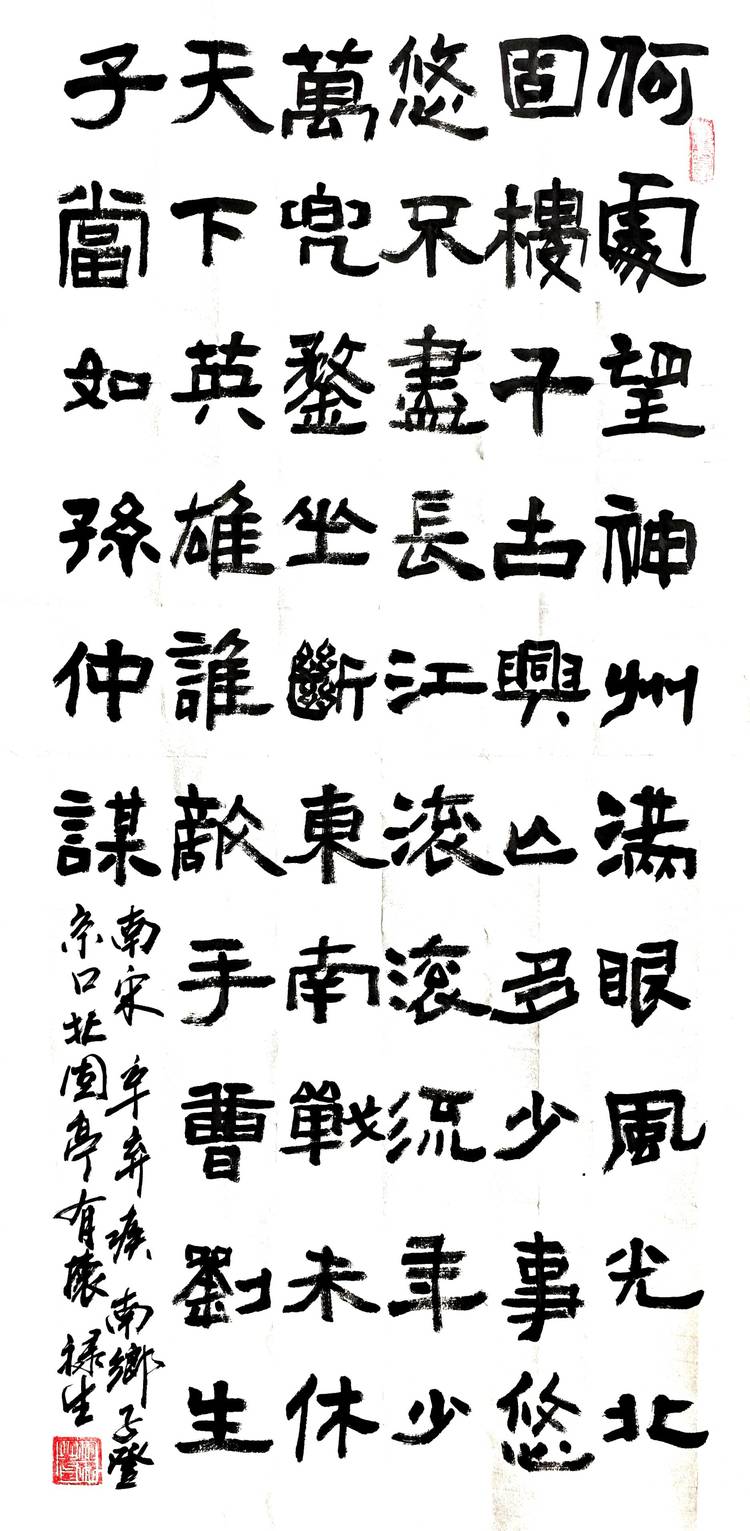 何處望神州滿眼風光北
固樓千古興亡多少事悠
悠不盡長江滚滚流年少
萬兜鍪坐斷東南戰未休
天下英雄誰敵手曹劉生
子當如孫仲謀
南宋 辛弃疾 南鄉子登
京口北固亭有懷 禄生